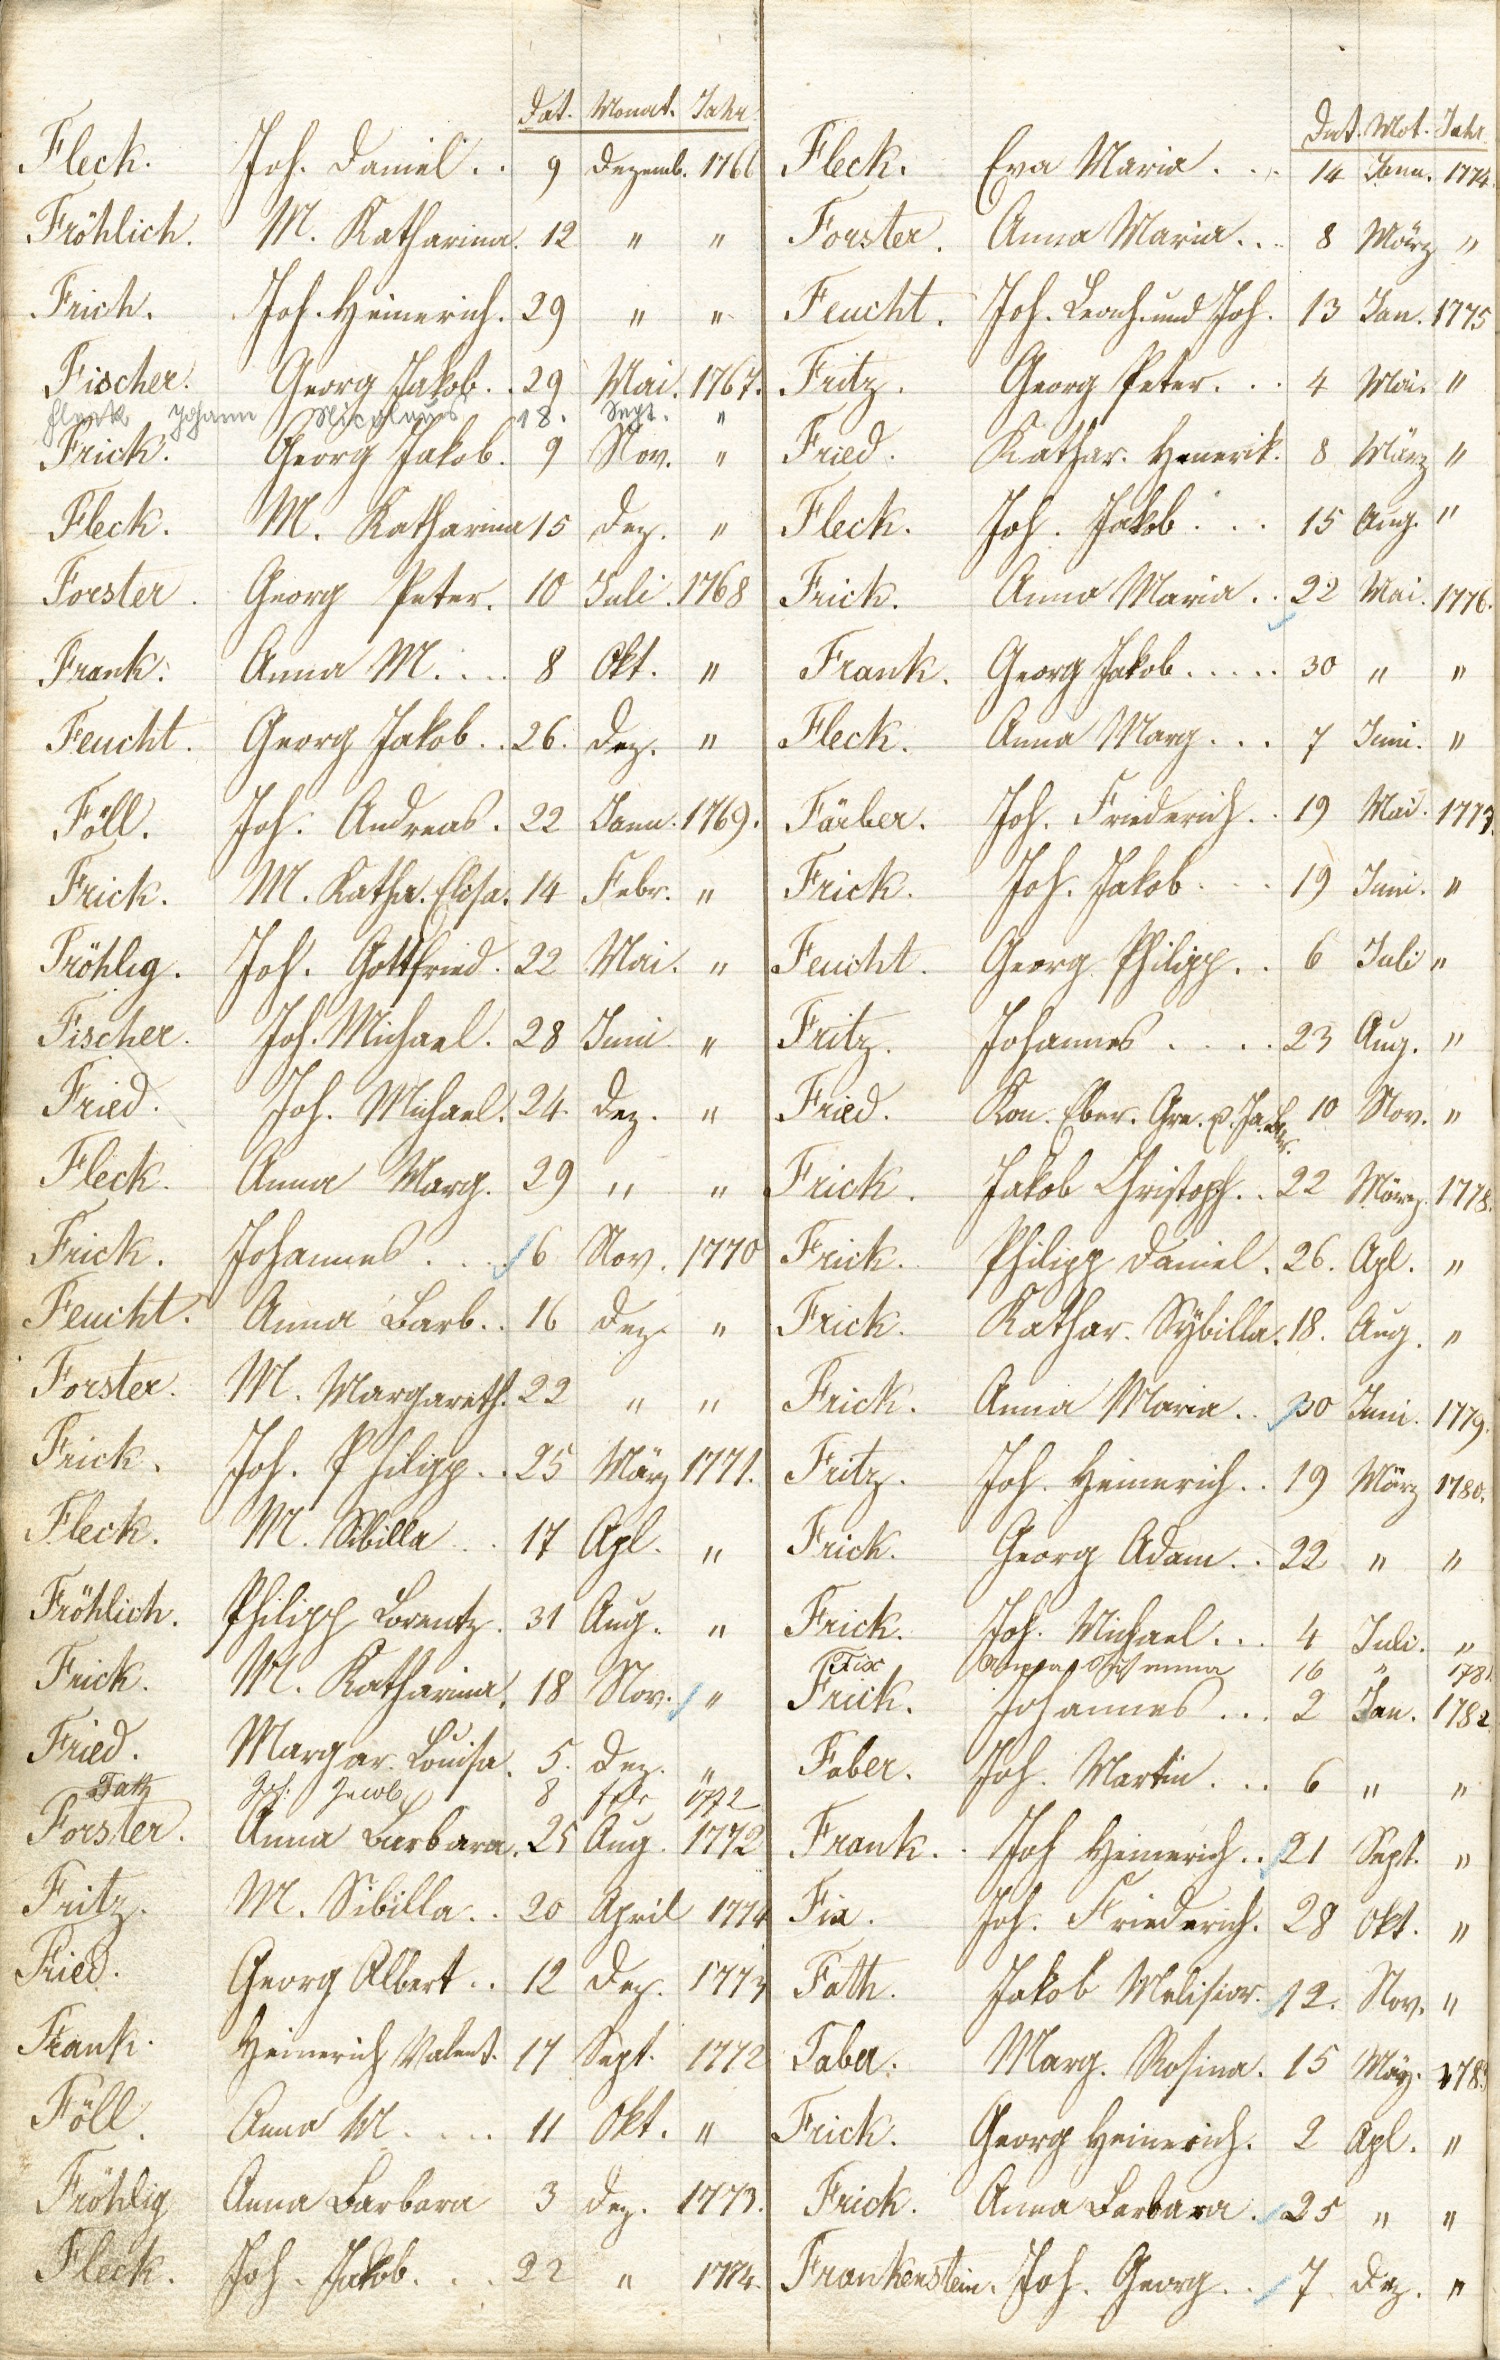 Dat. Monat. Jahr.
Fleck. Joh. Daniel . . 9 Dezemb. 1766
Fröhlich. M. Katharina. 12 " "
Frich. Joh. Heinerich. 29 " "
Fischer. Georg Jakob. . 29 Mai. 1767.
Fleck Johann Nicolaus 18. Sept. "
Frick. Georg Jakob. 9 Nov. "
Fleck. M. Katharina 15 Dez. "
Forster. Georg Peter. 10 Juli. 1768
Frank. Anna M. . . . . 8 Okt. "
Feucht. Georg Jakob. . 26. Dez. "
Föll. Joh. Andreas. 22 Jann. 1769.
Frick. M. Katha. Elisa. 14 Febr. "
Fröhlig. Joh. Gottfried. 22 Mai. "
Fischer. Joh. Michael. 28 Juni "
Fried. Joh. Michael. 24. Dez. "
Fleck. Anna Marg. 29 " "
Frick. Johannes . . . 6 Nov. 1770
Feucht. Anna Barb. . 16 Dez. "
Forster. M. Margareth. 22 " "
Frick. Joh. Philipp . . 25 März 1771.
Fleck. M. Sibilla . . 17 Apl. "
Fröhlich. Philipp Lorentz. 31 Aug. "
Frick. M. Katharina. 18 Nov. "
Fried. Margar. Louisa. 5. Dez. "
Fath Joh. Jacob 8 feb 1772
Forster. Anna Barbara. 25 Aug. 1772
Fritz. M. Sibilla . . 20 April 1774
Fried. Georg Albert . . 12 Dez. 1773
Frank. Heinerich Valent. 17 Sept. 1772
Föll. Anna M. . . . . 11 Okt. "
Fröhlig Anna Barbara 3 Dez. 1773.
Fleck. Joh. Jakob. . . 22 " 1774.
Dat. Mot. Jahr.
Fleck. Eva Maria . . . 14 Jann. 1774.
Forster. Anna Maria. . . 8 März "
Feucht. Joh. Leonh. und Joh. 13 Jan. 1775
Fritz. Georg Peter. . . 4 Mai. "
Fried. Kathar. Henerik. 8 März "
Fleck. Joh. Jakob . . . 15 Aug. "
Frick. Anna Maria . . 22 Mai. 1776.
Frank. Georg Jakob . . . . . 30 " "
Fleck. Anna Marg. . . 7 Juni. "
Färber. Joh. Friederich. . 19 Mai. 1777.
Frick. Joh. Jakob. . . 19 Juni. "
Feucht. Georg Philipp. . 6 Juli "
Fritz. Johannes . . . . 23 Aug. "
Fried. Kon. Eber. Gre. u. 10 Nov. "
Frick. Jakob Christoph. . 22 März. 1778.
Frick. Philipp Daniel. 26. Apl. "
Frick. Kathar. Sÿbilla. 18. Aug. "
Frick. Anna Maria . . 30 Juni. 1779.
Fritz. Joh. Heinerich. . 19 März 1780.
Frick. Georg Adam. . 22 " "
Frick. Joh. Michael. . . 4 Juli. "
Fix 16 " 1781.
Frick. Johannes . . . 2 Jan. 1782.
Faber. Joh. Martin. . . 6 " "
Frank. Joh Heinerich. . 21 Sept. "
Fix. Joh. Friederich. 28 Okt. "
Fath. Jakob Melisior. 12. Nov. "
Faber. Marg. Rosina. 15 März. 1783
Frick. Georg Heinerich. 2 Apl. "
Frick. Anna Barbara. 25 " "
Frankenstein. Joh. Georg. . 7 Dez. "